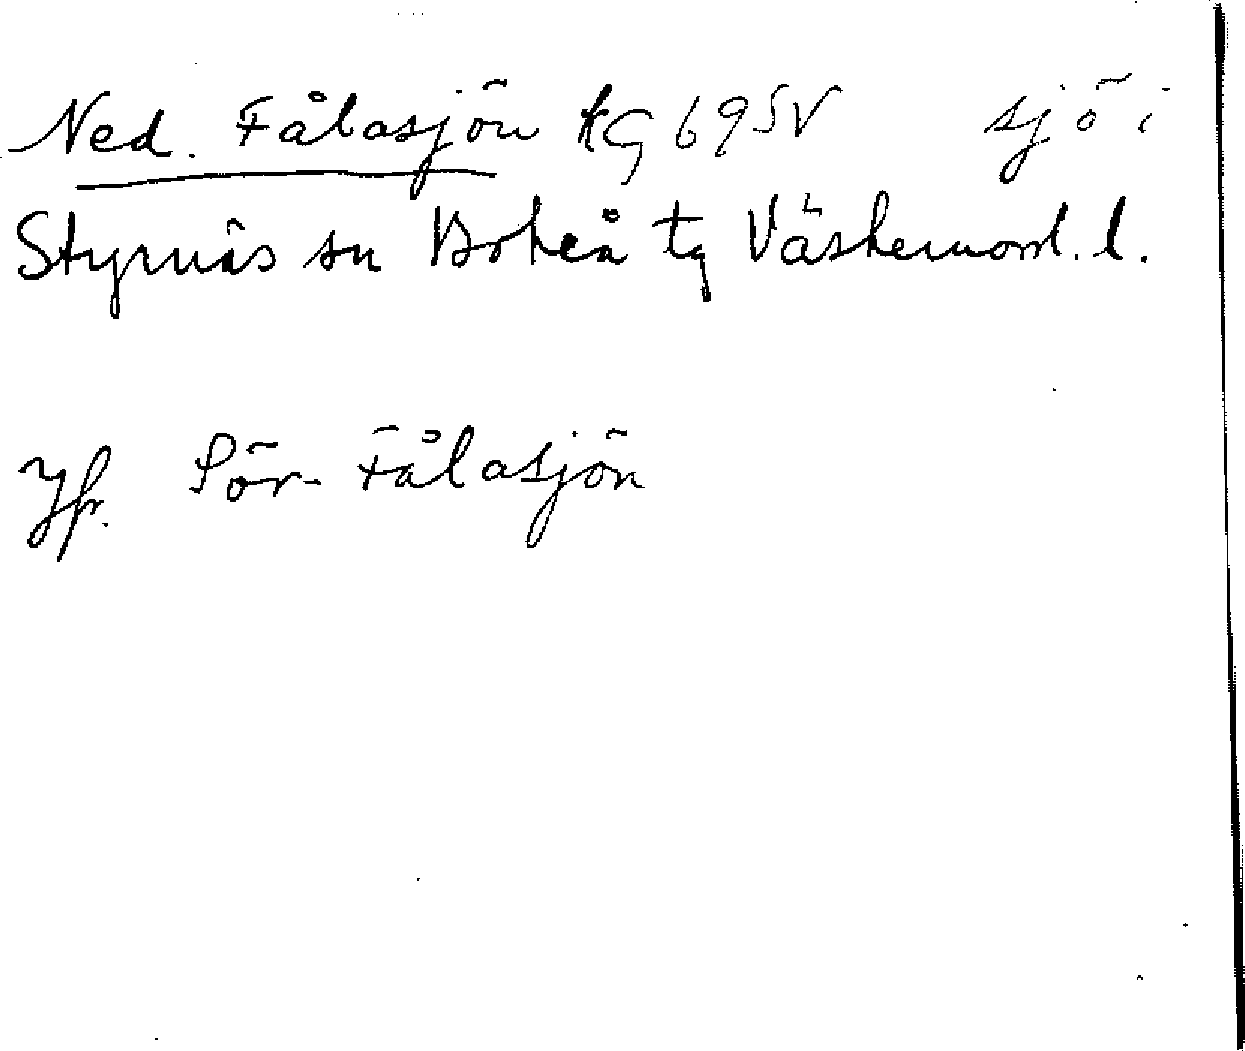 Ned. Fålasjön kG 69 SV sjö i
Styrnäs sn Boteå tg Västernorrl. l.
Jfr. Sör-Fålasjön